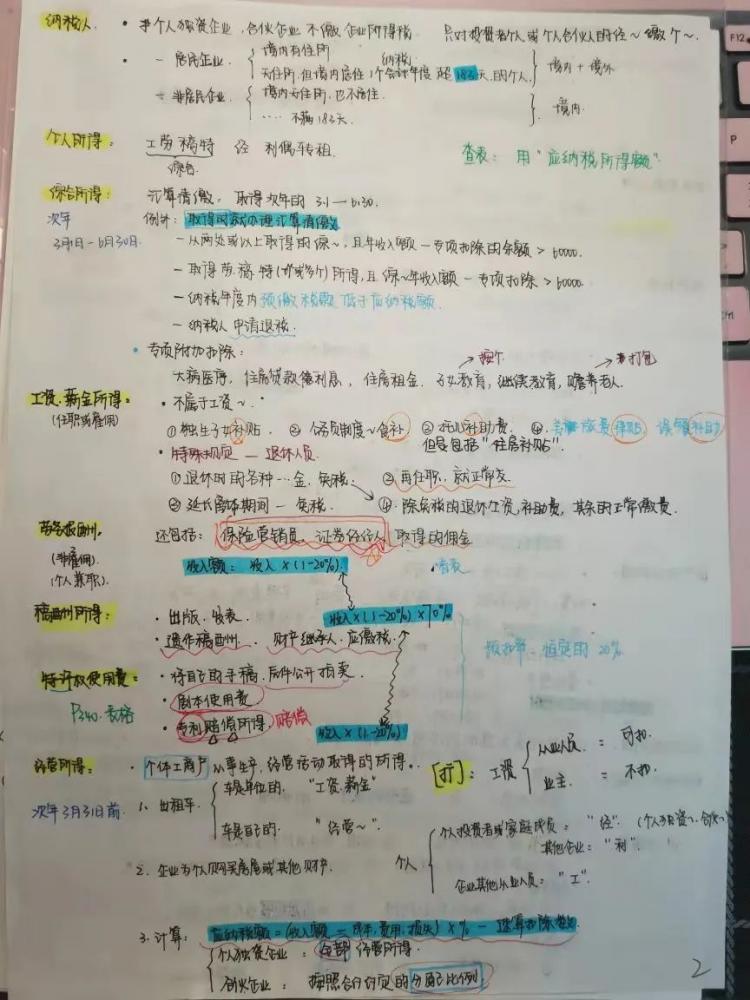 纳税人. · 个人独资企业, 合伙企业 不缴 企业所得税 只对投资者个人或个人合伙人的经~ 缴个~.
· 一 居民企业. { 境内有住所 纳税
无住所, 但境内居住 1个 年度 183天. 的个人. } 境内 + 境外
非居民企业. { 境内无住所, 也不居住
.... 不满183天. } 境内.
个人所得: 工劳稿特 经 利偶转租.
综合 查表: 用 "应纳税所得额".
综合所得: 汇算清缴, 取得次年的 3.1 — 6.30.
次年 例外: 取得 办理汇算清缴
3月1日 - 6月30日. — 从两处或以上取得的综~, 且年收入额 — 专项扣除的余额 > 60000.
— 取得劳. 稿. 特 (一或多个) 所得, 且 综~年收入额 — 专项扣除 > 60000.
— 纳税年度内 预缴税额 低于应纳税额.
— 纳税人 申请退税.
· 专项附加扣除:
大病医疗, 住房贷款利息, 住房租金. 子女教育, 继续教育, 赡养老人.
工资. 薪金所得: · 不属于工资~.
(任职或雇佣) ① 独生子女补贴. ② 公务员制度~ 补 ③ 托儿补助费. ④ 差旅费津贴 误餐补助
但是包括 "住房补贴".
· 特殊规定 — 退休人员.
① 退休时的各种…金. 免税. ② 再任职, 就正常交.
③ 延长离休期间 — 免税. ④. 除免税的退休工资, 补助费, 其余的正常缴费.
劳务报酬. 还包括: 保险营销员, 证券经纪人 取得的佣金.
(非雇佣).
(个人兼职). 收入额: 收入 × (1-20%). 查表
稿酬所得: · 出版. 发表. 收入 × (1-20%) × 70%
· 遗作稿酬. 财产继承人. 应缴税. 预扣率. 恒定的 20%
特许权使用费: · 将自己的手稿. 原件公开拍卖.
· 剧本使用费.
P340. 表格 · 专利赔偿所得. 赔偿 收入 × (1-20%)
经营所得: · 个体工商户 从事生产, 经营活动取得的所得. [扣]: 工资 { 从业人员. = 可扣.
业主. = 不扣.
次年3月31日前. 1. 出租车. { 车是单位的. "工资. 薪金"
车是自己的. "经营~".
2. 企业为个人购买房屋或其他财产. 个人 { 个人投资者或家庭成员: = "经". (个人独资~. 合伙~)
其他企业: = "利".
企业其他从业人员: = "工".
3. 计算: 应纳税额 = (收入额 — 成本, 费用, 损失) × % — 速算扣除数.
{ 个人独资企业: 全部 经营所得.
合伙企业: 按照合同约定的分配比例.
2
F12
P